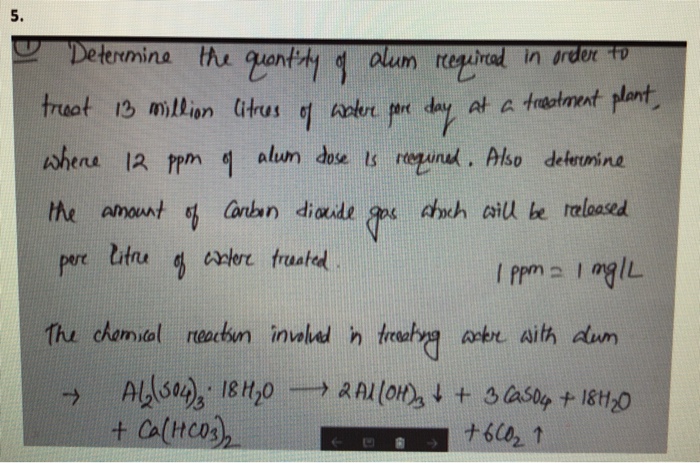 5.
① Determine the quantity of alum required in order to
treat 13 million litres of water per day at a treatment plant,
where 12 ppm of alum dose is required. Also determine
the amount of Carbon dioxide gas which will be released
per litre of water treated.
1 ppm = 1 mg/L
The chemical reaction involved in treating water with alum
→ Al₂(SO4)₃· 18H₂O ⟶ 2Al(OH)₃ ↓ + 3CaSO4 + 18H₂O
+ Ca(HCO₃)₂ +6CO₂ ↑